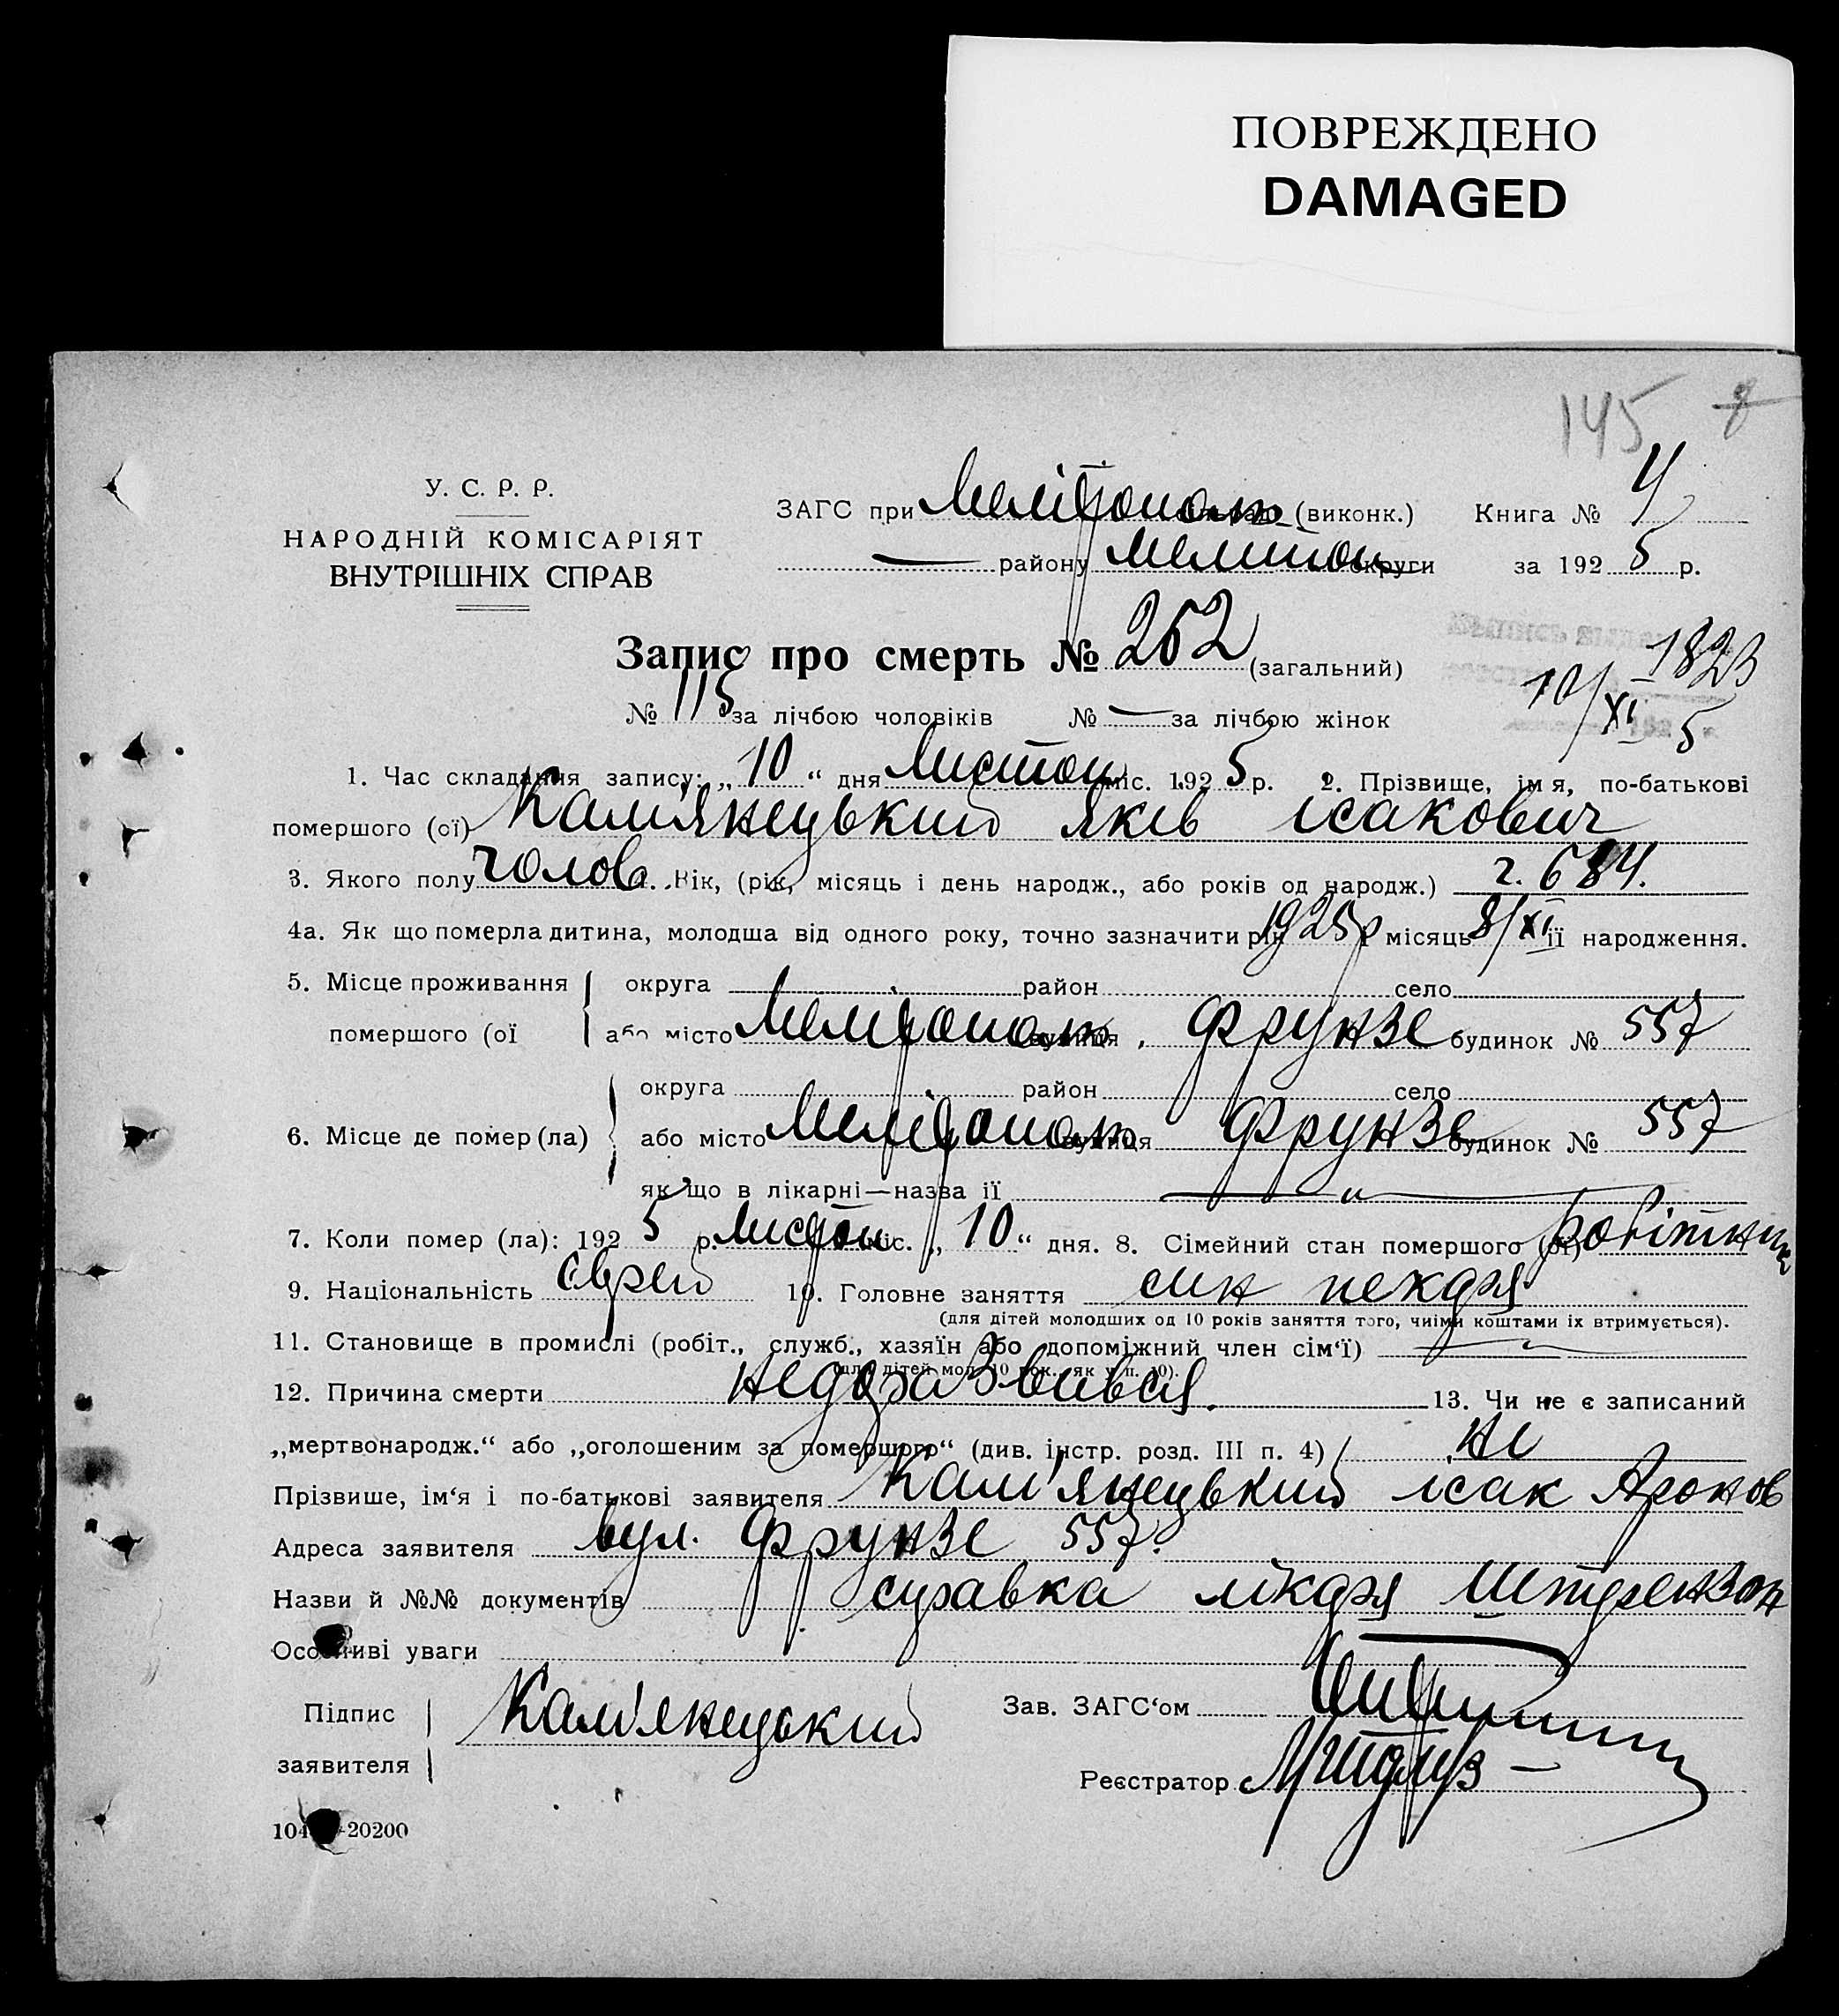 ПОВРЕЖДЕНО
DAMAGED
145
У. С. Р. Р.
НАРОДНІЙ КОМІСАРІЯТ
ВНУТРІШНІХ СПРАВ
ЗАГС при Мелітополь (виконк.) Книга № 4
— району Мелитоп округи за 192 5 р.
Запис про смерть № 252 (загальний)
1823
10/XI 5
№ 115 за лічбою чоловіків № — за лічбою жінок
1. Час складання запису: „ 10 “ дня Листоп міс. 192 5 р. 2. Прізвище, імя, по-батькові
помершого (ої) Кам'янецький Яків Ісакович
3. Якого полу чолов. Вік, (рік, місяць і день народж., або років од народж.)
4а. Як що померла дитина, молодша від одного року, точно зазначити рік 1925 р місяць 8/XI її народження.
5. Місце проживання округа район село
помершого (ої або місто Мелітополь вулиця Фрунзе будинок № 557
округа район село
6. Місце де помер (ла) або місто Мелітополь вулиця Фрунзе будинок № 557
як що в лікарні—назва її — " —
7. Коли помер (ла): 192 5 р. Листоп міс. „ 10 “ дня. 8. Сімейний стан помершого (ої) робітник
9. Національність Єврей 10. Головне заняття син пекаря
(для дітей молодших од 10 років заняття того, чиїми коштами їх втримується).
11. Становище в промислі (робіт., служб., хазяїн або допоміжний член сім‘ї) — " —
(для дітей мол. 10 рок. як у п. 10).
12. Причина смерти недоразвився. 13. Чи не є записаний
„мертвонародж.“ або „оголошеним за помершого“ (див. інстр. розд. III п. 4) ні
Прізвише, ім‘я і по-батькові заявителя Кам'янецький Ісак Аронов
Адреса заявителя вул. Фрунзе 557.
Назви й №№ документів справка лікаря Штерензон
Особливі уваги
Підпис
заявителя Кам'янецький
Зав. ЗАГС‘ом
Реєстратор
104 -20200